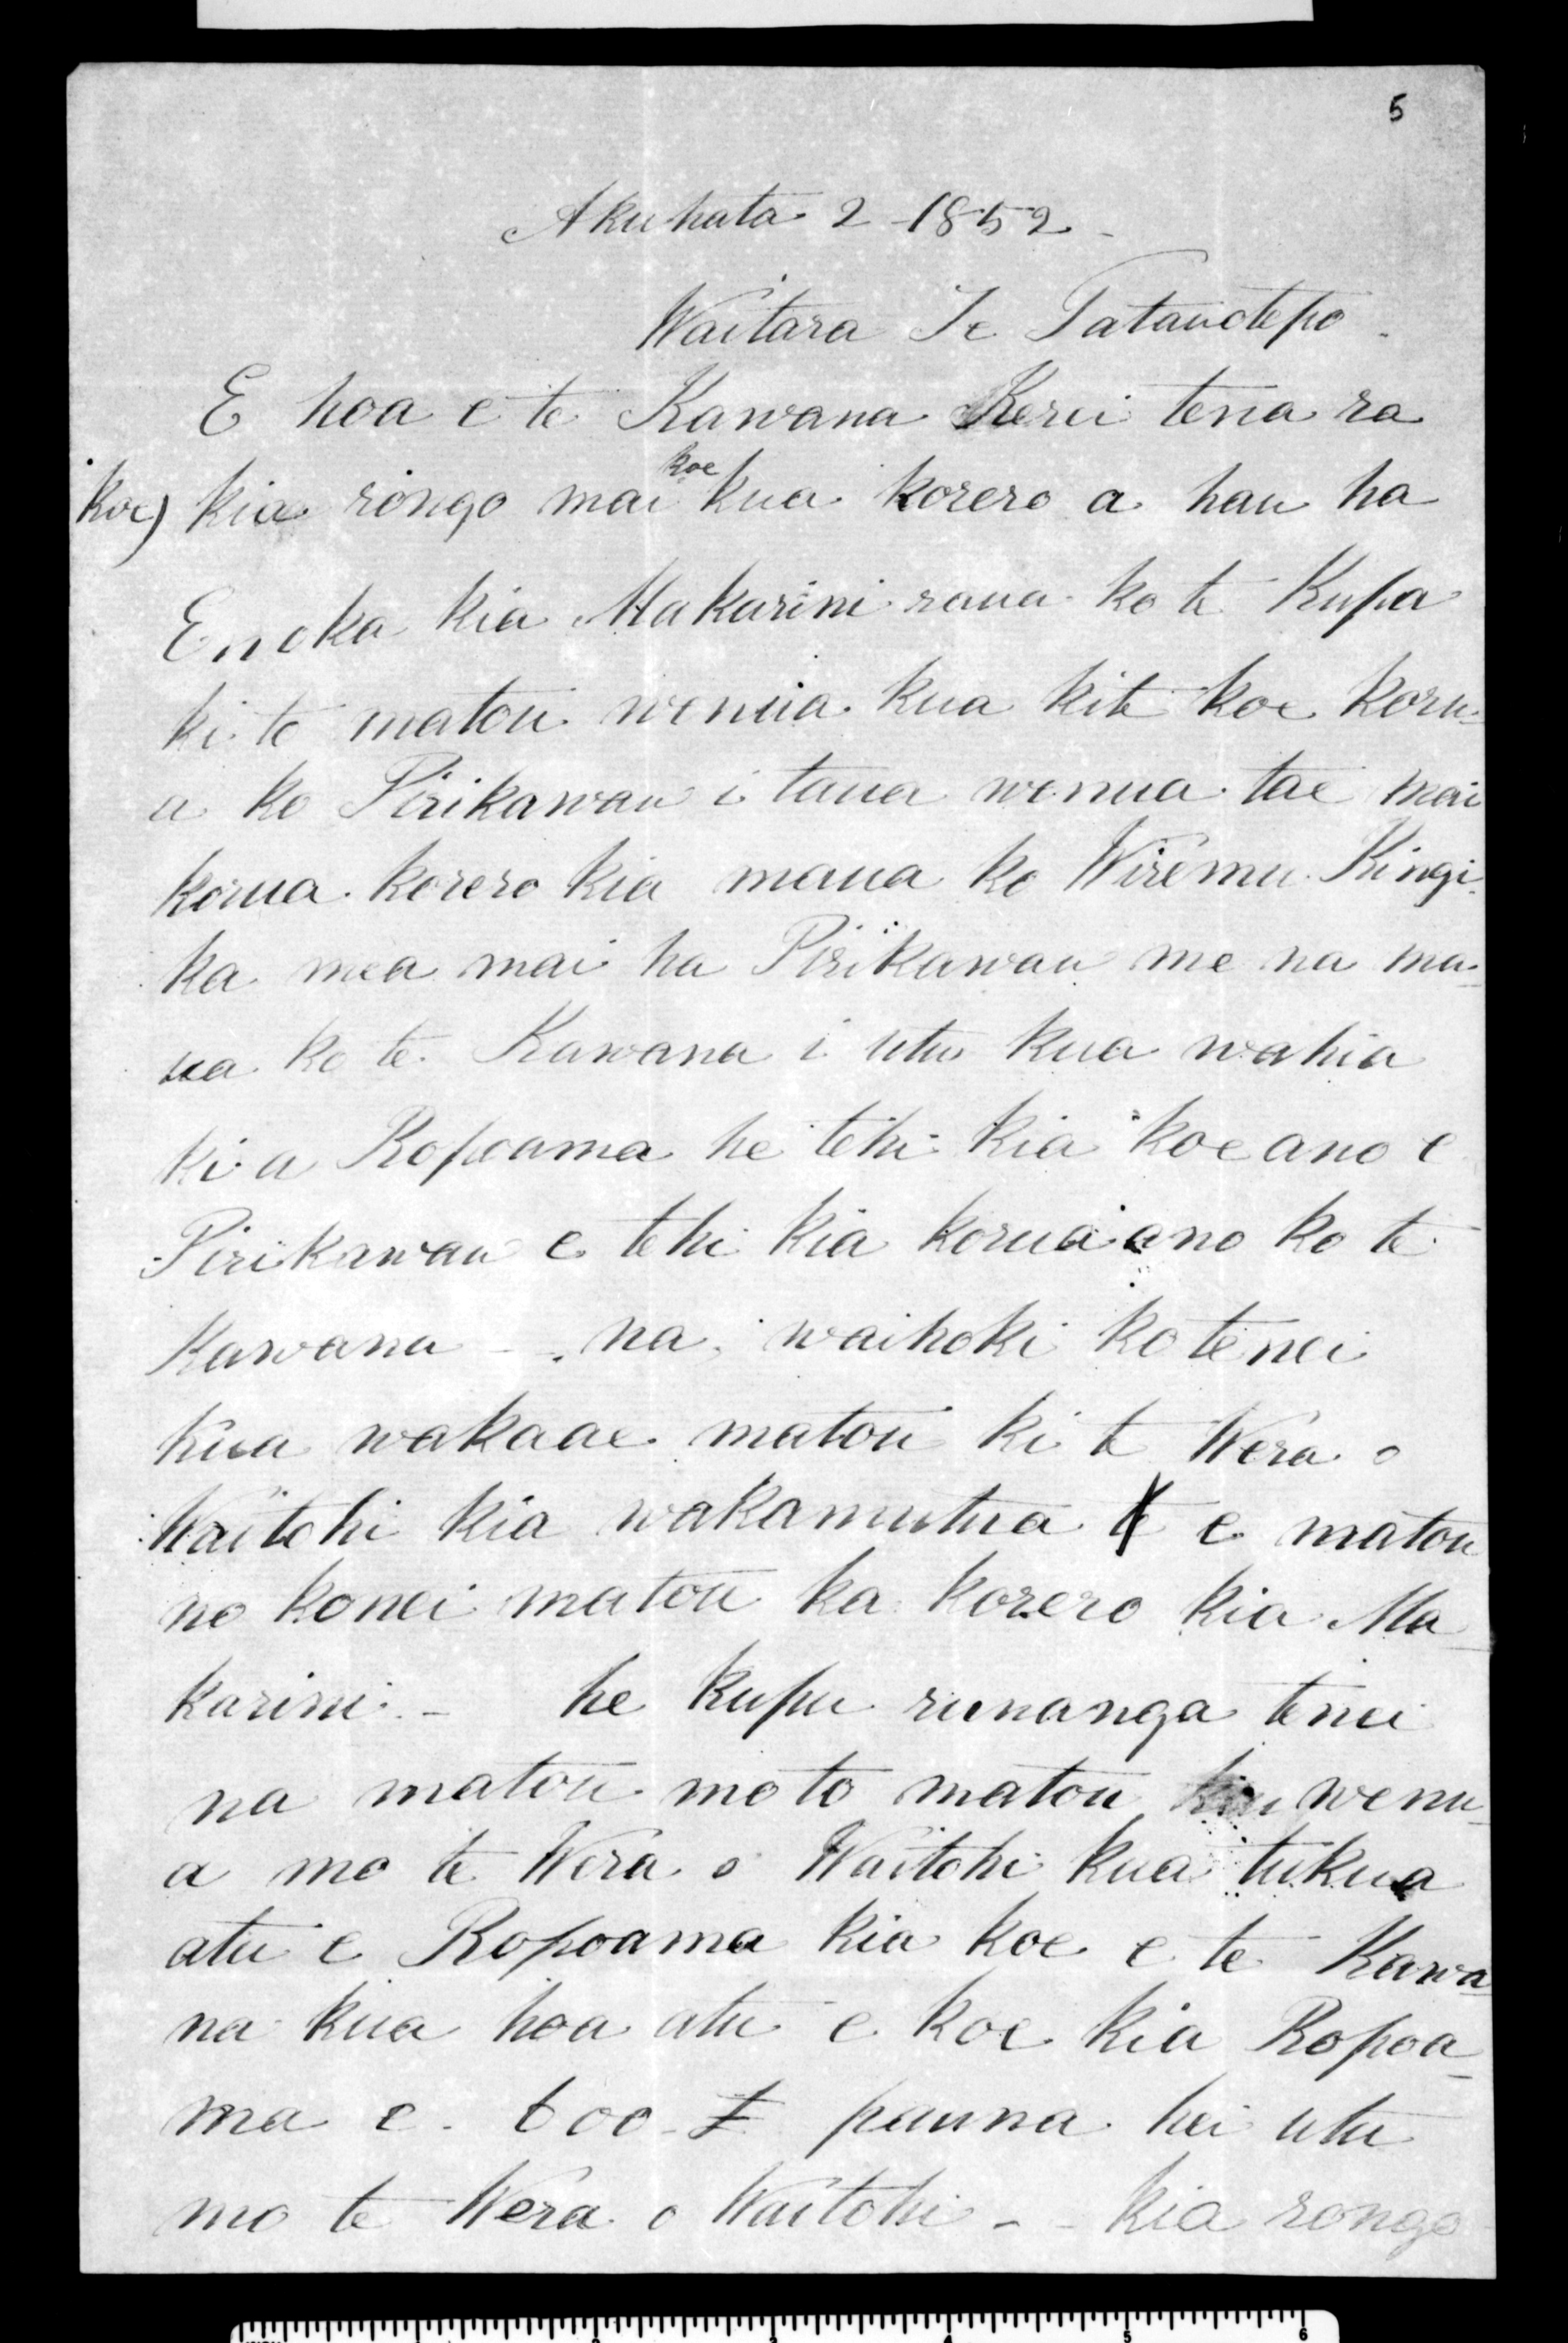 5
Akuhata 2 - 1852 -
Waitara Te Tatauotepo -
E hoa e te Kawana Kerei tena ra
koe) kia rongo mai koe kua korero a hau ha
Enoka kia Makarini raua ko te Kupa
ki to matou wenua kua kite koe koru-
a ko Pirikawau i taua wenua tae mai
korua korero kia maua ko Wiremu Kingi
ka mea mai ha Pirikawau me na ma-
ua ko te Kawana i utu kua wahia
ki a Ropoama he tehi kia koe ano e
Pirikawau e tehi kia korua ano ko te
Kawana - . na, waihoki ko tenei
kua wakaae matou ki te Wera o
Waitohi kia wakamutua te e matou
no konei matou ka korero kia Ma-
karini - he kupu runanga tenei
na matou mo to matou wenu-
a mo te Wera o Waitohi kua tukua
atu e Ropoama kia koe e te Kawa-
na kua hoa atu e koe kia Ropoa-
ma e 600 £ pauna hei utu
mo te Wera o Waitohi - - kia rongo
1 2 3 4 5 6